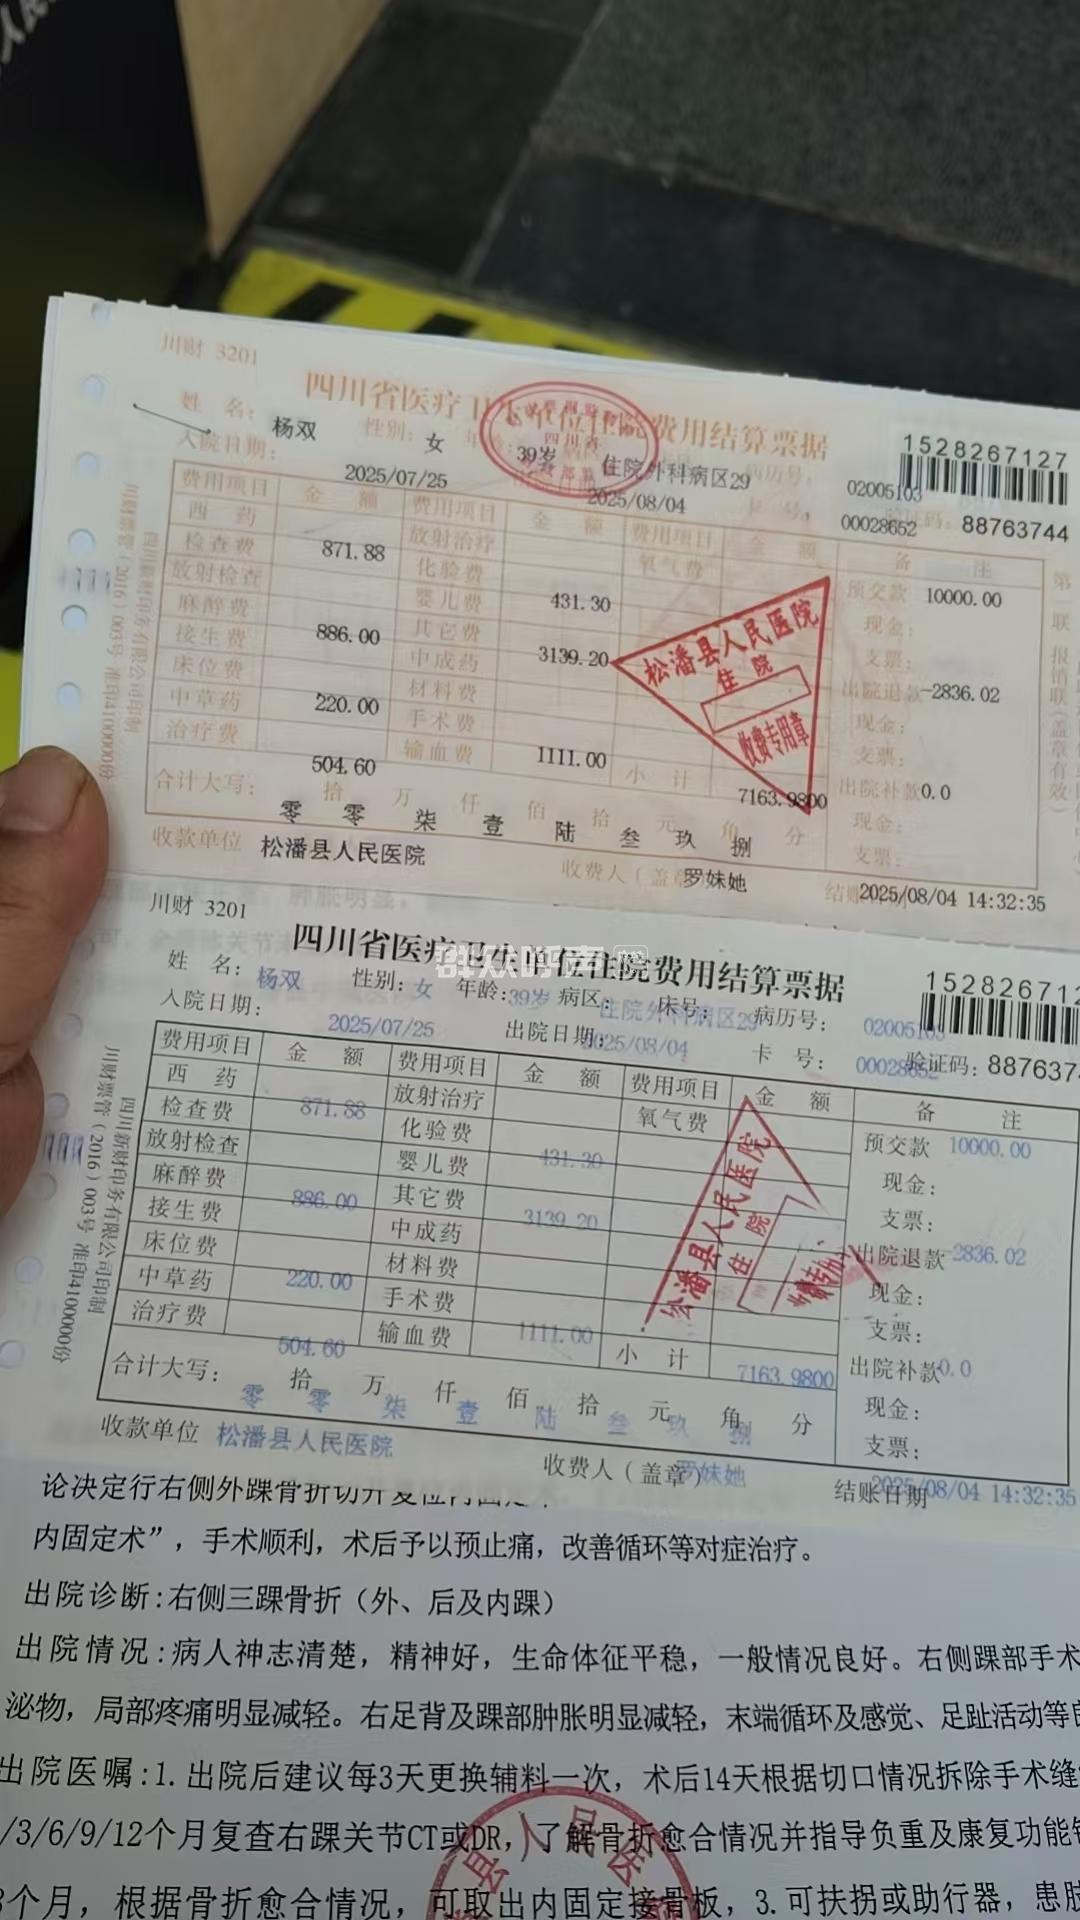 川财 3201
四川省医疗卫生单位住院费用结算票据
1528267127
姓 名: 杨双 性别: 女 年龄: 39岁 住院外科病区29 病历号: 02005103
入院日期: 2025/07/25 2025/08/04 卡 号: 00028652 验证码: 88763744
费用项目 金 额 费用项目 金 额 费用项目 金 额 备 注
西 药 871.88 放射治疗 氧气费 预交款 10000.00
检查费 化验费 431.30 现金:
放射检查 婴儿费 支票:
麻醉费 886.00 其它费 3139.20 出院退款 -2836.02
接生费 中成药 现金:
床位费 220.00 材料费 支票:
中草药 手术费 1111.00 出院补款 0.0
治疗费 504.60 输血费 小 计 7163.9800 现金:
合计大写: 零 拾 零 万 柒 仟 壹 佰 陆 拾 叁 元 玖 角 捌 分 支票:
收款单位 松潘县人民医院 收费人(盖章) 罗妹她 结账日期 2025/08/04 14:32:35
松潘县人民医院
住院
收费专用章
四川省
川财票管(2016)003号 准印4100000份
四川新财印务有限公司印制
第一联 报销联(盖章有效)
川财 3201
四川省医疗卫生单位住院费用结算票据
群众呼声
152826712
姓 名: 杨双 性别: 女 年龄: 39岁 病区: 住院外科病区29 床号: 病历号: 02005103
入院日期: 2025/07/25 出院日期: 2025/08/04 卡 号: 00028652 验证码: 887637
费用项目 金 额 费用项目 金 额 费用项目 金 额 备 注
西 药 871.88 放射治疗 氧气费 预交款 10000.00
检查费 化验费 431.30 现金:
放射检查 婴儿费 支票:
麻醉费 886.00 其它费 3139.20 出院退款 -2836.02
接生费 中成药 现金:
床位费 220.00 材料费 支票:
中草药 手术费 1111.00 出院补款 0.0
治疗费 504.60 输血费 小 计 7163.9800 现金:
合计大写: 零 拾 零 万 柒 仟 壹 佰 陆 拾 叁 元 玖 角 捌 分 支票:
收款单位 松潘县人民医院 收费人(盖章) 罗妹她 结账日期 2025/08/04 14:32:35
松潘县人民医院
住院
川财票管(2016)003号 准印4100000份
四川新财印务有限公司印制
论决定行右侧外踝骨折切开复位内固定
内固定术”,手术顺利,术后予以预止痛,改善循环等对症治疗。
出院诊断:右侧三踝骨折(外、后及内踝)
出院情况:病人神志清楚,精神好,生命体征平稳,一般情况良好。右侧踝部手术
泌物,局部疼痛明显减轻。右足背及踝部肿胀明显减轻,末端循环及感觉、足趾活动等
出院医嘱:1.出院后建议每3天更换辅料一次,术后14天根据切口情况拆除手术缝
/3/6/9/12个月复查右踝关节CT或DR,了解骨折愈合情况并指导负重及康复功能
个月,根据骨折愈合情况,可取出内固定接骨板,3.可扶拐或助行器,患肢